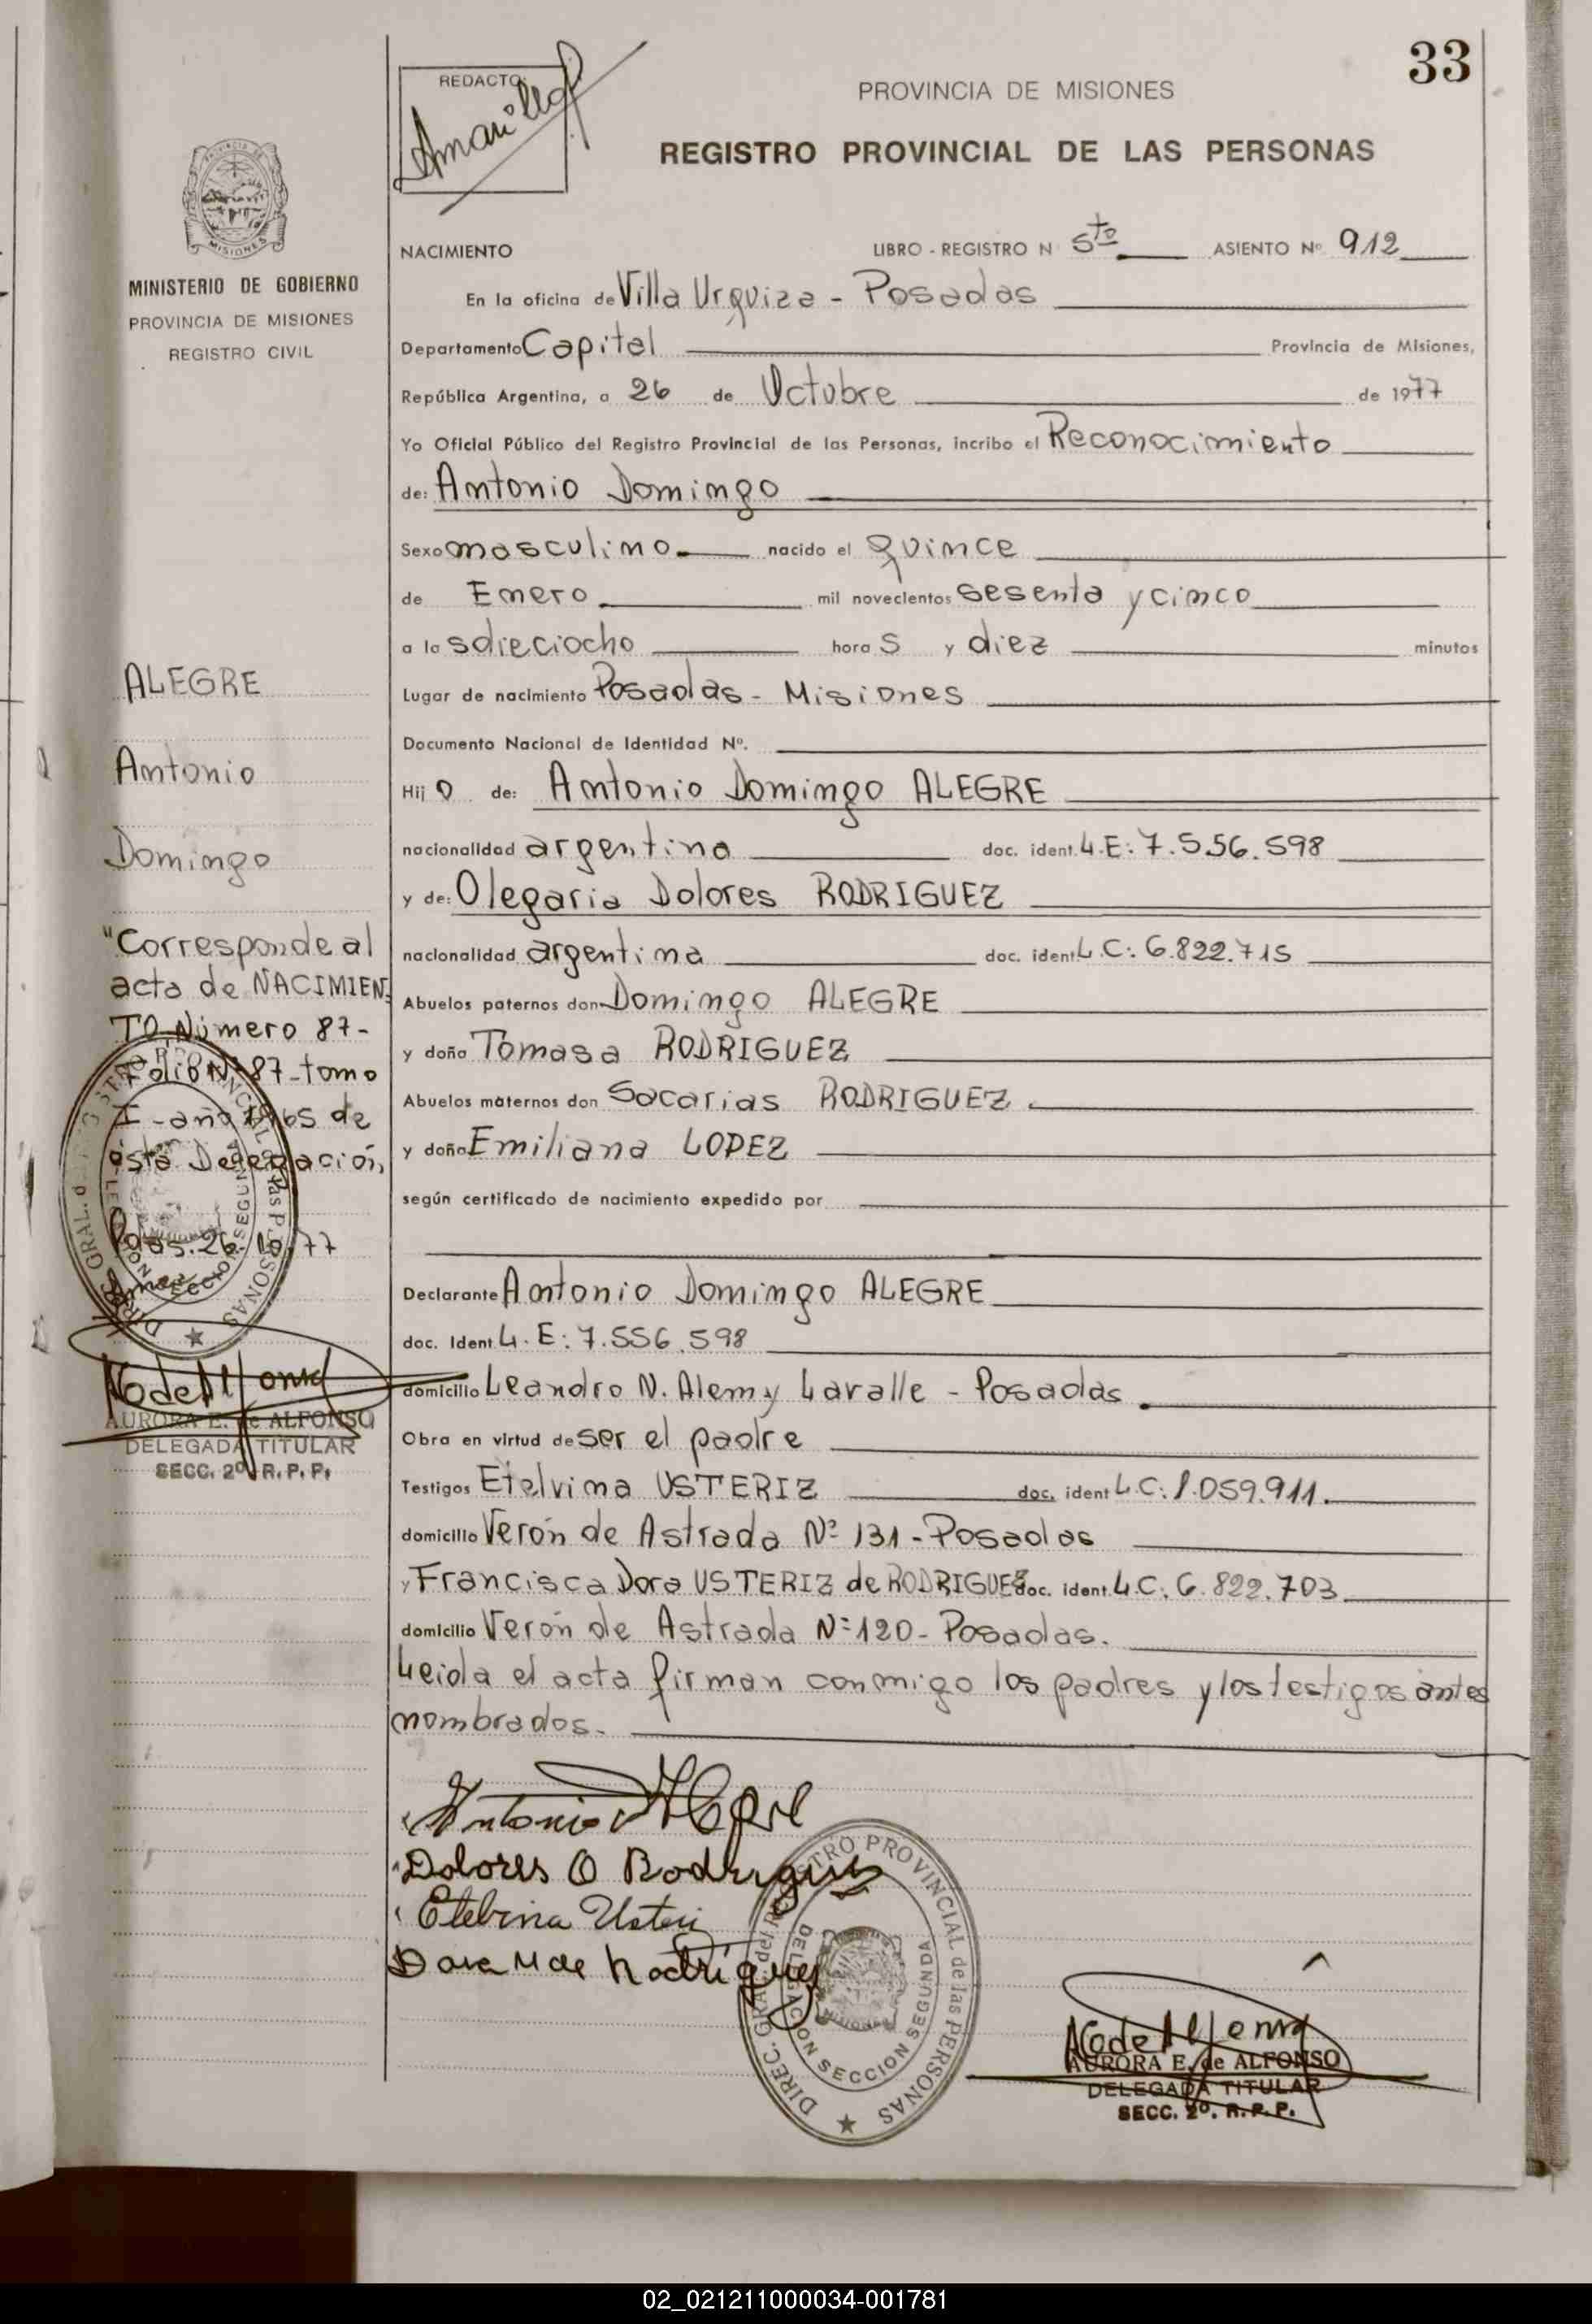 33
REDACTO:
PROVINCIA DE MISIONES
REGISTRO PROVINCIAL DE LAS PERSONAS
MISIONES
MINISTERIO DE GOBIERNO
PROVINCIA DE MISIONES
REGISTRO CIVIL
NACIMIENTO LIBRO - REGISTRO N 5to ASIENTO Nº 912
En la oficina de Villa Urquiza - Posadas
Departamento Capital Provincia de Misiones,
República Argentina, a 26 de Octubre de 1977
Yo Oficial Público del Registro Provincial de las Personas, incribo el Reconocimiento
de: Antonio Domingo
Sexo masculino nacido el quince
de Enero mil novecientos sesenta y cinco
a las dieciocho horas y diez minutos
Lugar de nacimiento Posadas - Misiones
Documento Nacional de Identidad Nº.
Hijo de: Antonio Domingo ALEGRE
nacionalidad argentina doc. ident. L.E: 7.556.598
y de: Olegaria Dolores RODRIGUEZ
nacionalidad argentina doc. ident L.C: 6.822.715
Abuelos paternos don Domingo ALEGRE
y doña Tomasa RODRIGUEZ
Abuelos maternos don Sacarias RODRIGUEZ.
y doña Emiliana LOPEZ
según certificado de nacimiento expedido por
Declarante Antonio Domingo ALEGRE
doc. Ident L.E: 7.556.598
domicilio Leandro N. Alem y Lavalle - Posadas.
Obra en virtud de ser el padre
Testigos Etelvina USTERIZ doc. ident L.C: 1.059.911.
domicilio Verón de Astrada Nº 131 - Posadas
y Francisca Dora USTERIZ de RODRIGUEZ doc. ident. L.C: 6.822.703
domicilio Verón de Astrada Nº 120 - Posadas.
Leida el acta firman conmigo los padres y los testigos antes
nombrados.
ALEGRE
Antonio
Domingo
"Corresponde al
acta de NACIMIEN
TO Número 87-
Folio Nº 87-tomo
I - año 1965 de
ésta Delegación,
Pdas. 26/10/77
AURORA E. de ALFONSO
DELEGADA TITULAR
SECC. 2º R.P.P.
Dolores O Rodriguez
DIREC. GRAL. del REGISTRO PROVINCIAL de las PERSONAS
DELEGACION SECCION SEGUNDA
AURORA E. de ALFONSO
DELEGADA TITULAR
SECC. 2º. R.P.P.
02_021211000034-001781